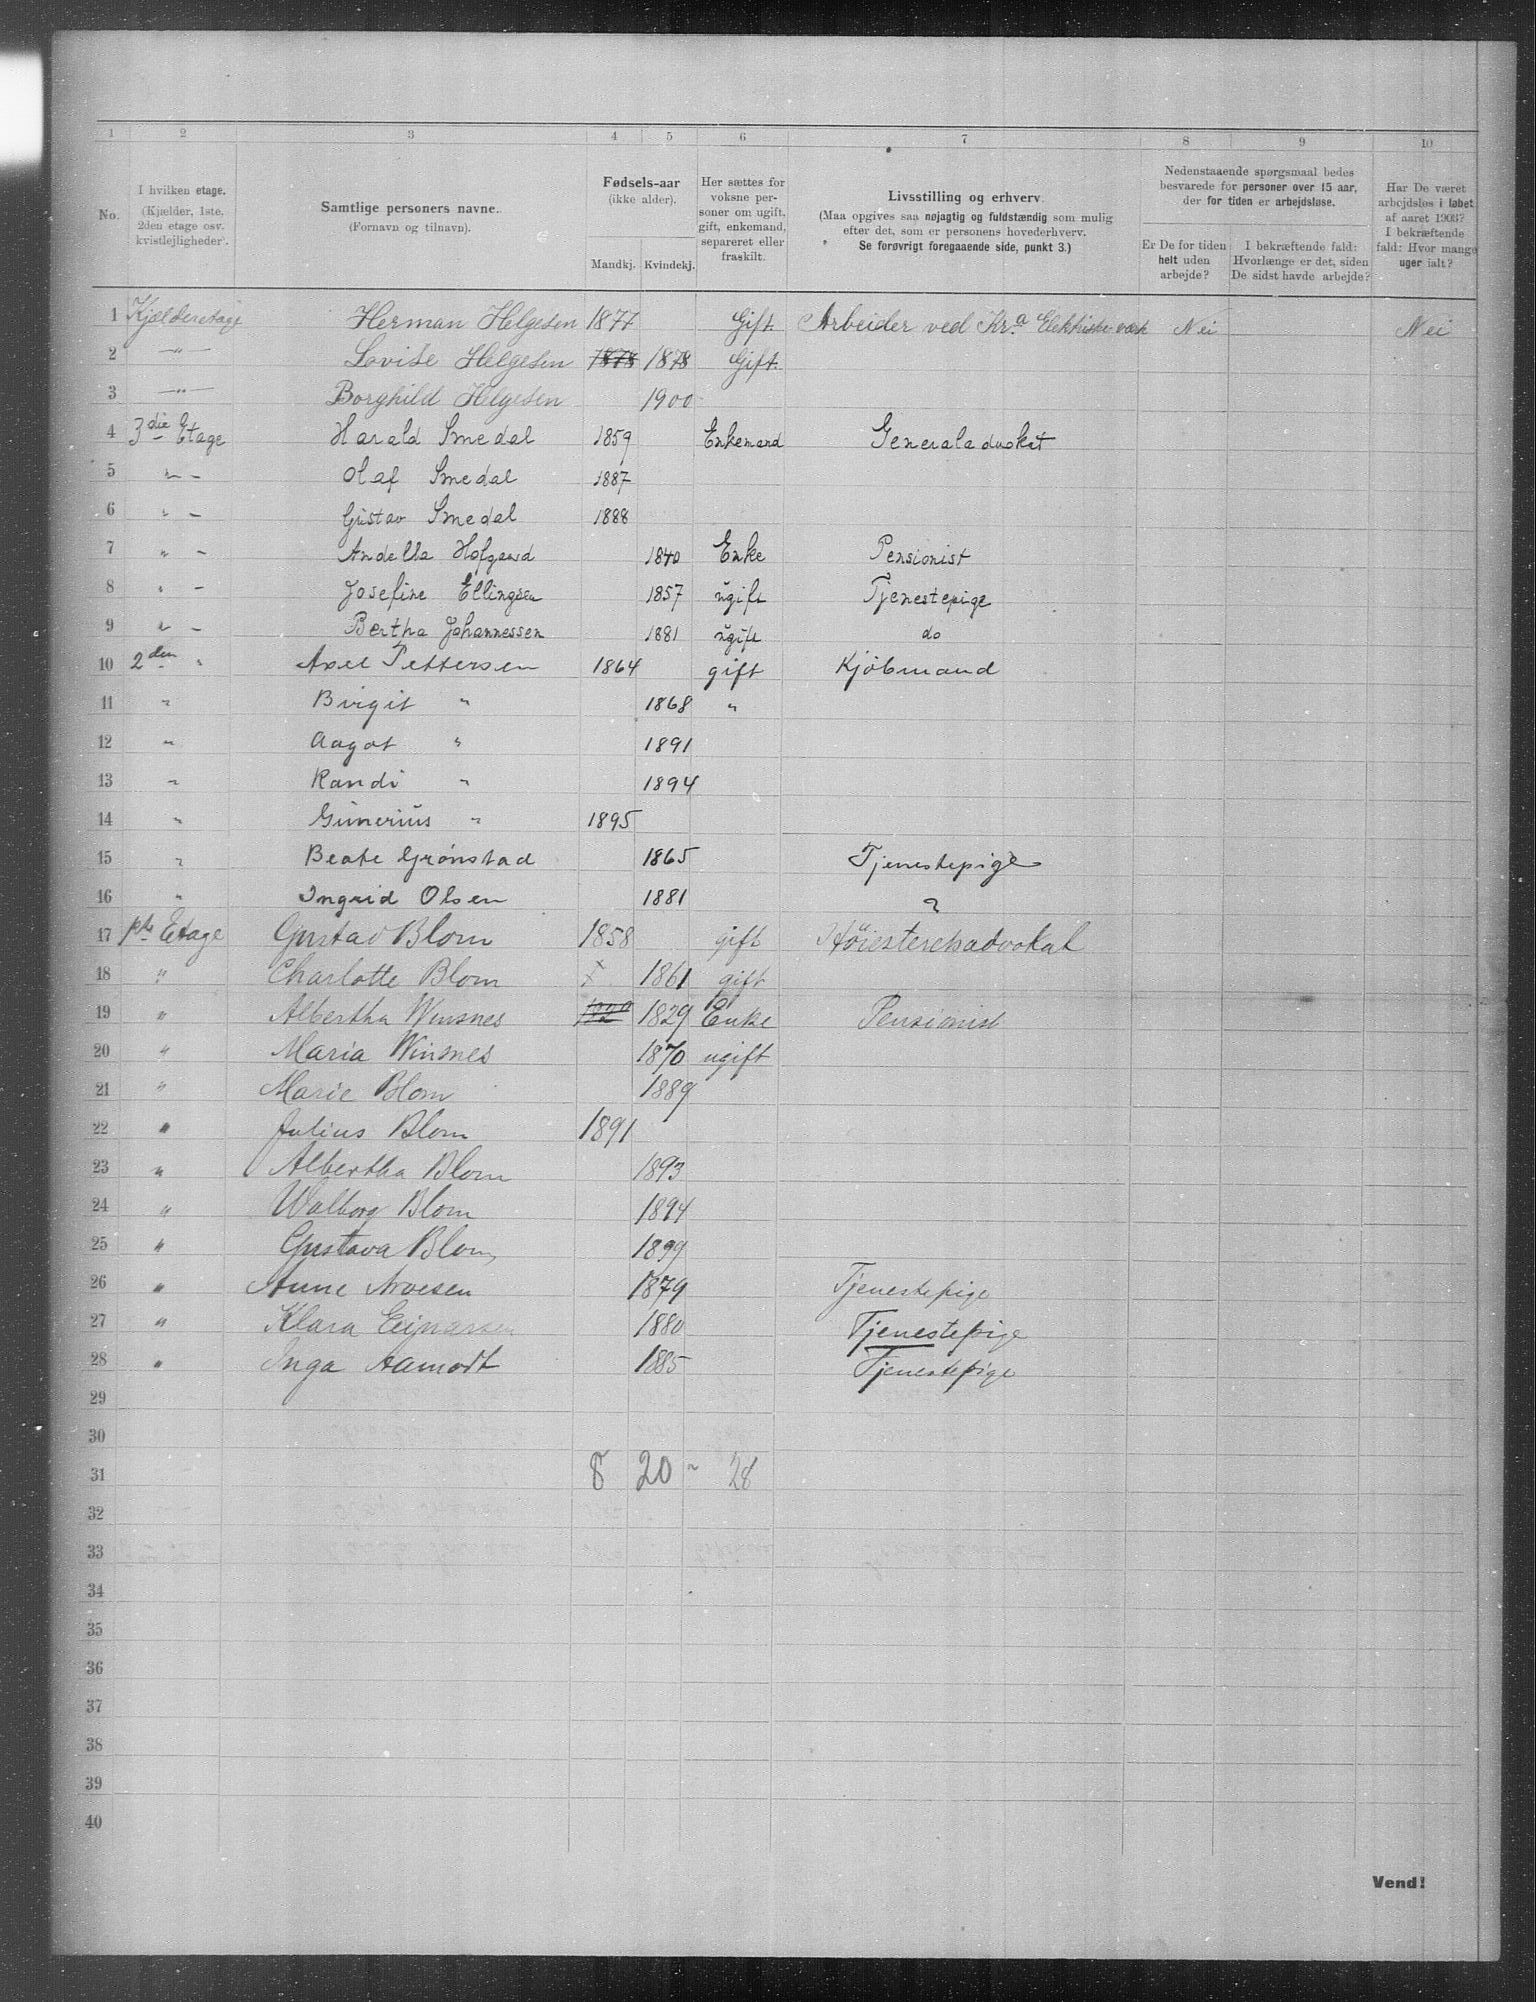 1 2 3 4 5 6 7 8 9 10
No. I hvilken etage. (Kjælder, 1ste, 2den etage osv. kvistlejligheder). Samtlige personers navne. (Fornavn og tilnavn). Fødsels-aar (ikke alder). Mandkj. Kvindekj. Her sættes for voksne personer om ugift, gift, enkemand, separeret eller fraskilt. Livsstilling og erhverv. (Maa opgives saa nøjagtig og fuldstændig som mulig efter det, som er personens hovederhverv. Se forøvrigt foregaaende side, punkt 3.) Nedenstaaende spørgsmaal bedes besvarede for personer over 15 aar, der for tiden er arbejdsløse. Er De for tiden helt uden arbejde? I bekræftende fald: Hvorlænge er det, siden De sidst havde arbejde? Har De været arbejdsløs i løbet af aaret 1903? I bekræftende fald: Hvor mange uger ialt?
1 Kjælderetage Herman Helgesen 1877 Gift Arbeider ved Kr.a Elektriske værk Nei Nei
2 -"- Lovise Helgesen 1878 1878 Gift
3 -"- Borghild Helgesen 1900
4 3die Etage Harald Smedal 1859 Enkemand Generaladvokat
5 " - Olaf Smedal 1887
6 " - Gustav Smedal 1888
7 " - Hofgaard 1840 Enke Pensionist
8 " - Josefine Ellingsen 1857 ugift Tjenestepige
9 " - Bertha Johannessen 1881 ugift do
10 2den " Axel Pettersen 1864 gift Kjöbmand
11 " Birgit " 1868 "
12 " Aagot " 1891
13 " Randi " 1894
14 " Gunerius " 1895
15 " Beate Grönstad 1865 Tjenestepige
16 " Ingrid Olsen 1881 "
17 Etage Gustav Blom 1858 gift Höiesteretsadvokat
18 " Charlotte Blom 1861 gift
19 " Albertha Winsnes 1829 Enke Pensionist
20 " Maria Winsnes 1870 ugift
21 " Marie Blom 1889
22 " Julius Blom 1891
23 " Albertha Blom 1893
24 " Walborg Blom 1894
25 " Gustava Blom 1899
26 " Anne Arvesen 1879 Tjenestepige
27 " Klara 1880 Tjenestepige
28 " Inga Aamodt 1885 Tjenestepige
29
30
31 8 20 - 28
32
33
34
35
36
37
38
39
40
Vend!